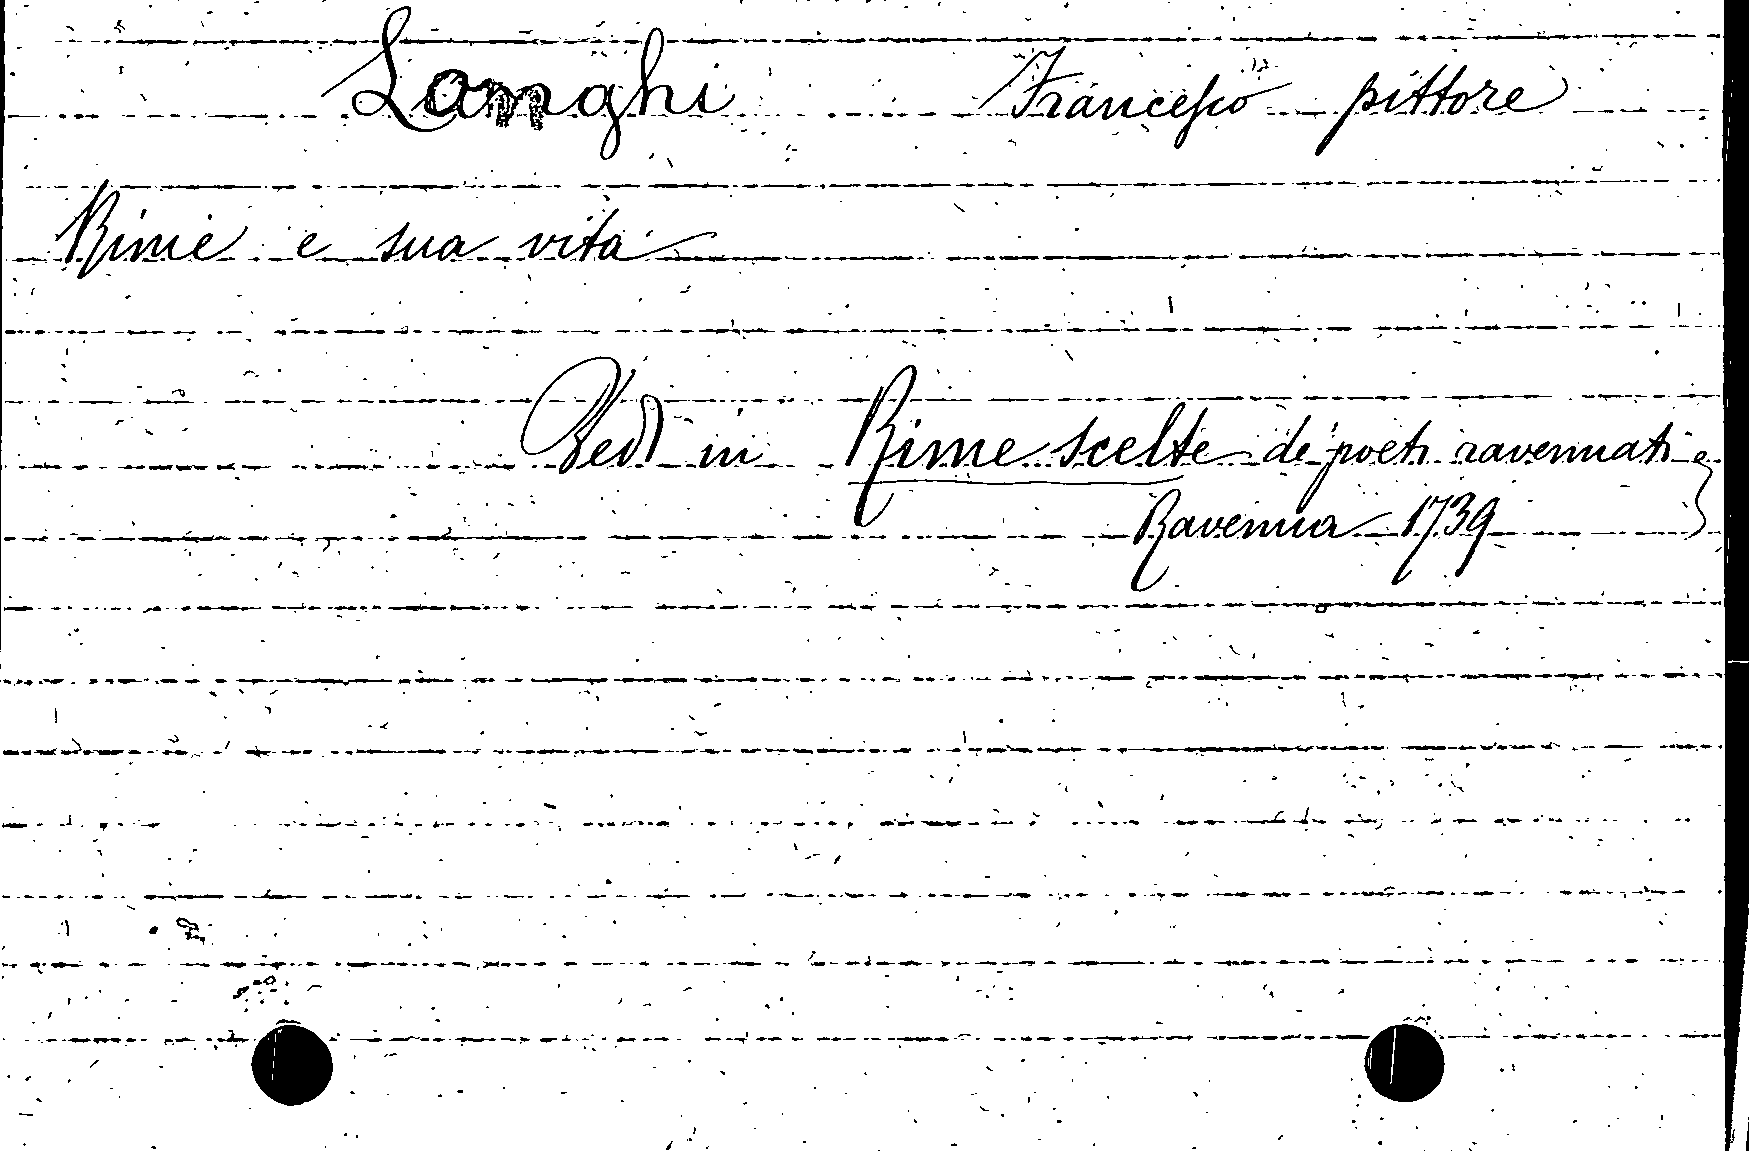 Langhi Francesco pittore
Rime e sua vita
Vedi in Rime scelte de' poeti ravennati
Ravenna 1739